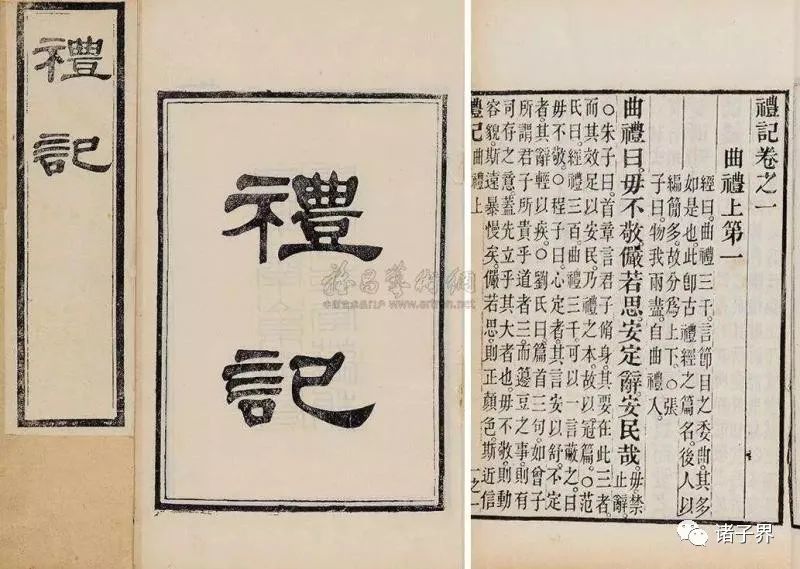 禮記
禮
記
禮記卷之一
曲禮上第一
經曰。曲禮三千。言節目之委曲。其多
如是也。此卽古禮經之篇名。後人以
編簡多。故分爲上下。○張
子曰。物我兩盡。自曲禮入。
曲禮曰。毋不敬。儼若思。安定辭。安民哉。毋禁止辭。
○朱子曰。首章言君子脩身。其要在此三者。
而其效足以安民。乃禮之本。故以冠篇。○范
氏曰。經禮三百。曲禮三千。可以一言蔽之曰
毋不敬。○程子曰。心定者。其言安以舒。不定
者。其辭輕以疾。○劉氏曰。篇首三句。如曾子
所謂君子所貴乎道者三。而籩豆之事。則有
司存之意。蓋先立乎其大者也。毋不敬。則動
容貌。斯遠暴慢矣。儼若思。則正顏色。斯近信
禮記 曲禮上
雅昌藝術網
www.artron.net
诸子界